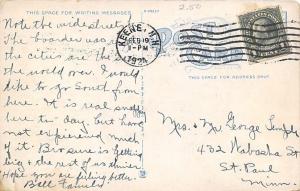 THIS SPACE FOR WRITING MESSAGES
Note the wide street.
The boarder was
the cities are the
the world over. I would
like to go South from
here. It is real snow
here to-day but have
not experienced much
of it. Bro sure is getting
big & the rest of us
Hope you are feeling better.
Bell Family
2.50
KEENE, N.H.
FEB 19
1-PM
THIS SPACE FOR ADDRESS ONLY
Mrs. & Mr George Temple
432 Wabasha St
St. Paul
Minn.